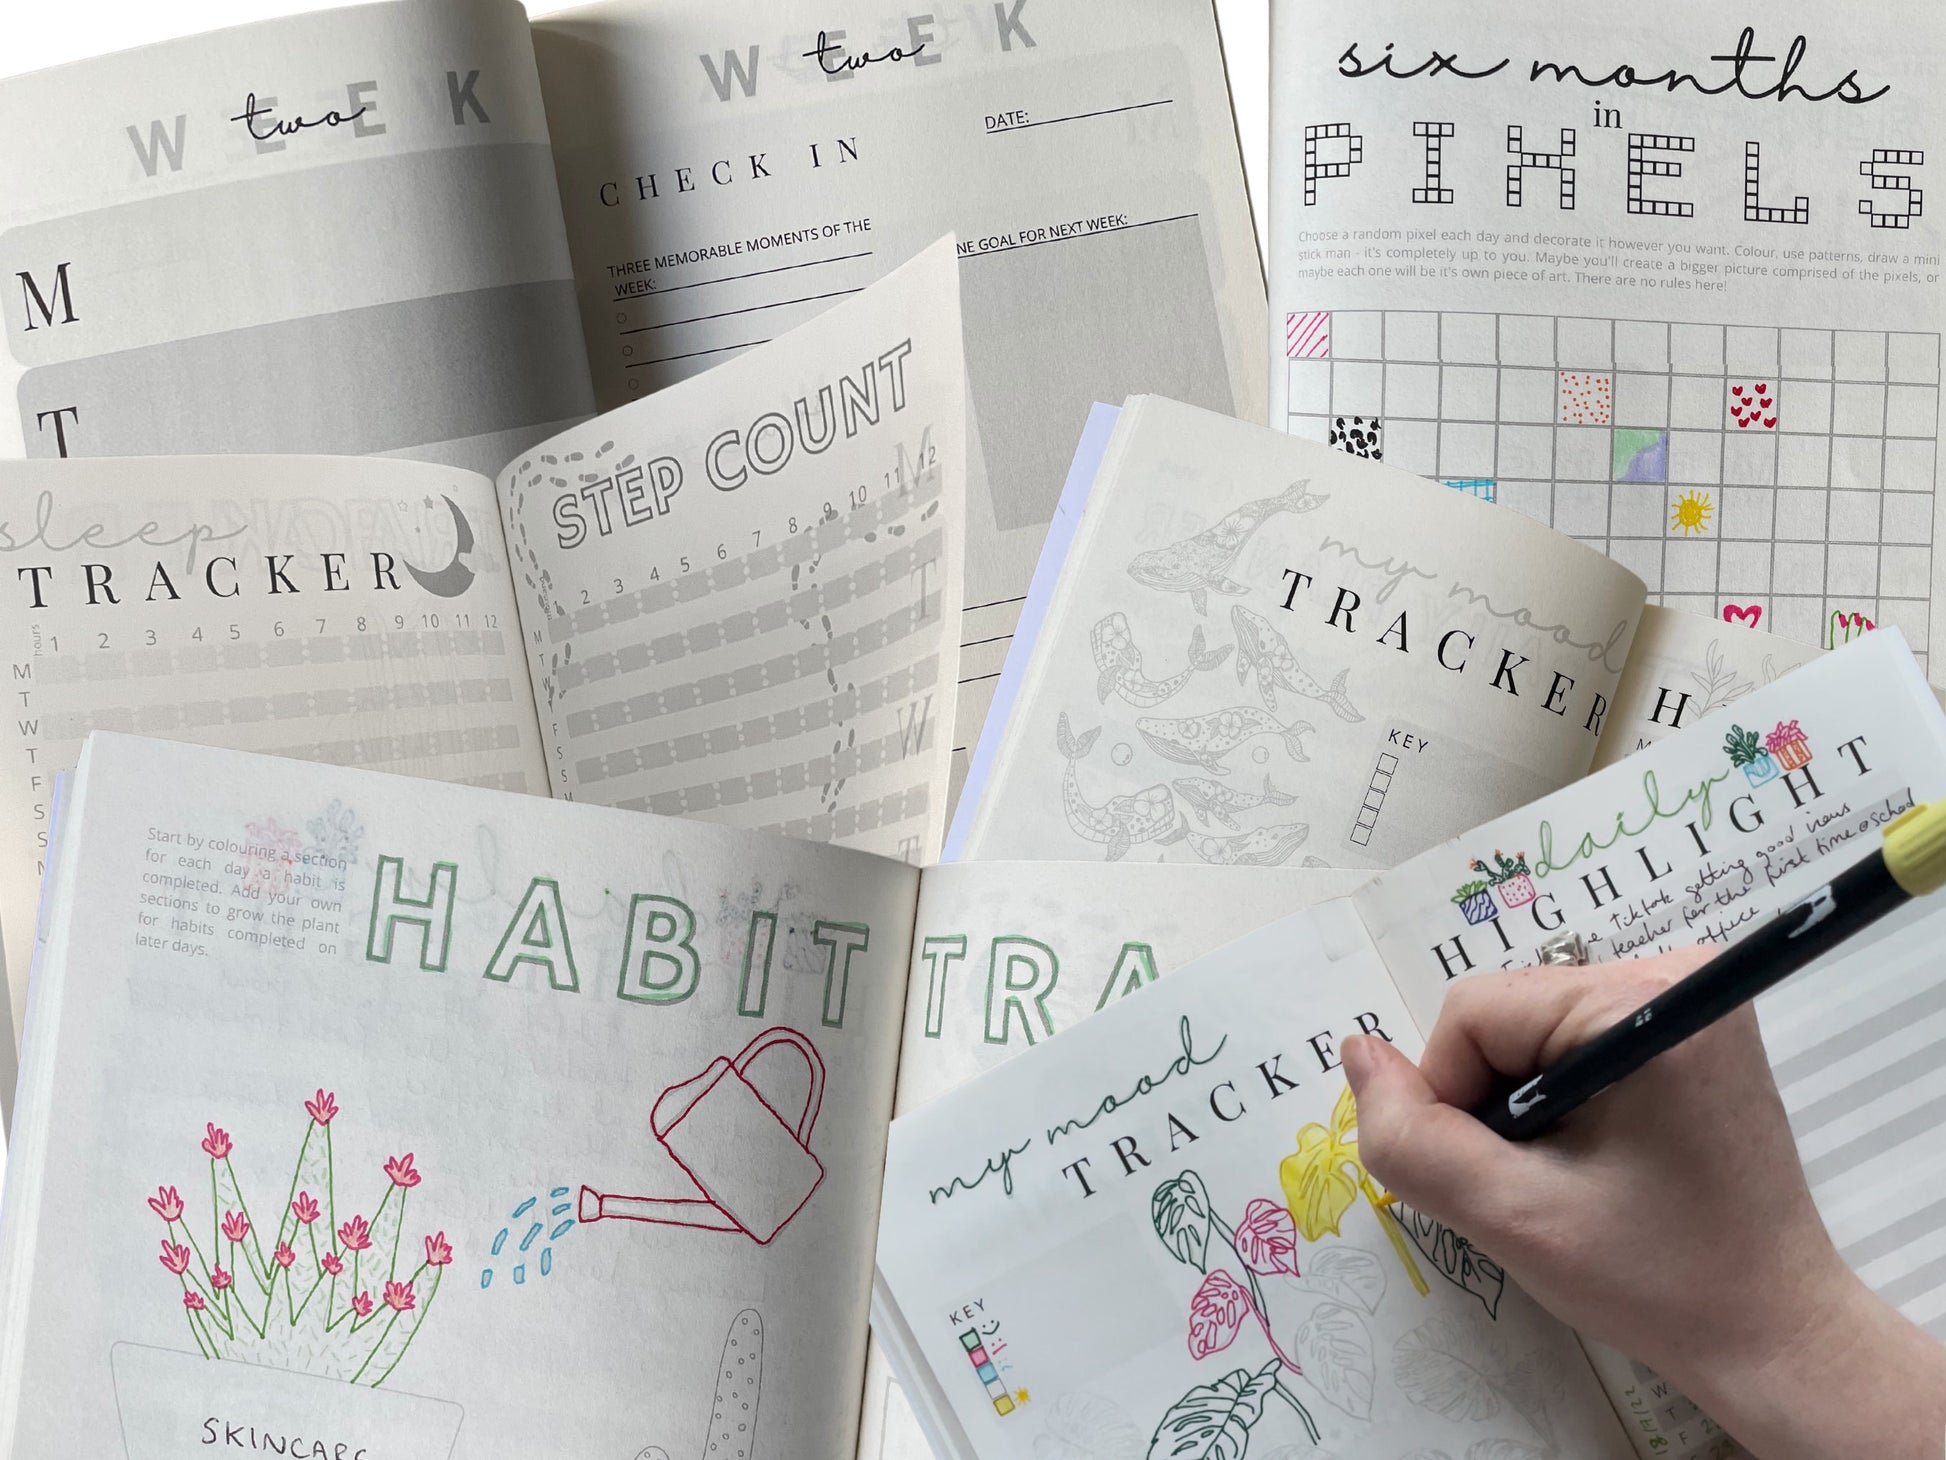 WEEK
two
M
T
WEEK
two
CHECK IN
DATE:
THREE MEMORABLE MOMENTS OF THE
WEEK:
NE GOAL FOR NEXT WEEK:
six months
in
PIXELS
Choose a random pixel each day and decorate it however you want. Colour, use patterns, draw a mini
stick man - it's completely up to you. Maybe you'll create a bigger picture comprised of the pixels, or
maybe each one will be it's own piece of art. There are no rules here!
sleep
TRACKER
hours
1 2 3 4 5 6 7 8 9 10 11 12
M
T
W
T
F
S
S
M
STEP COUNT
1 2 3 4 5 6 7 8 9 10 11 12
M
T
W
T
F
S
S
M
M
T
W
T
my mood
TRACKER
KEY
H
Start by colouring a section
for each day a habit is
completed. Add your own
sections to grow the plant
for habits completed on
later days.
HABIT
TRA
SKINCARE
my mood
TRACKER
KEY
daily
HIGHLIGHT
getting good news
TikTok
teacher for the first time @ school
office
W
T
F